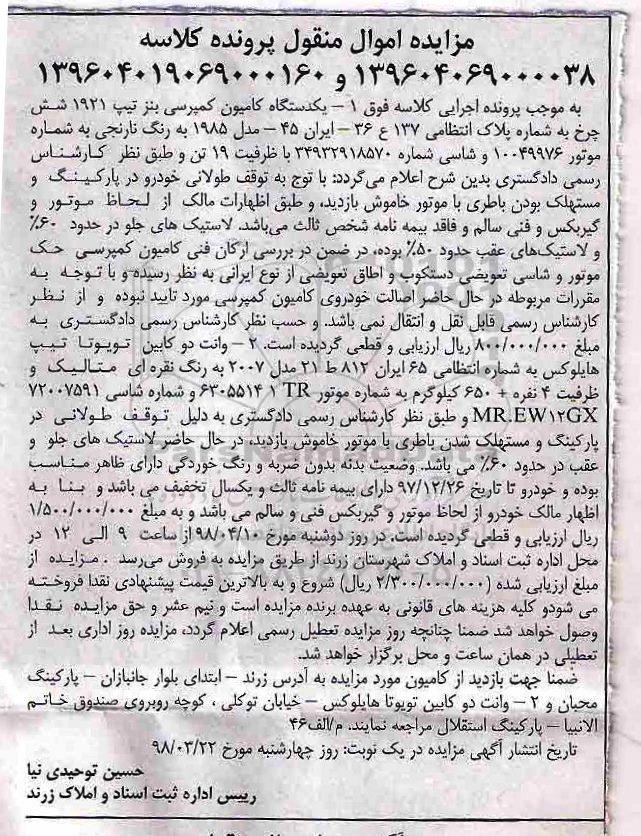 مزایده اموال منقول پرونده کلاسه
۱۳۹۶۰۴۰۶۹۰۰۰۰۳۸ و ۱۳۹۶۰۴۰۱۹۰۶۹۰۰۰۱۶۰
به موجب پرونده اجرایی کلاسه فوق ۱ – یکدستگاه کامیون کمپرسی بنز تیپ ۱۹۲۱ شش
چرخ به شماره پلاک انتظامی ۱۳۷ ع ۳۶ – ایران ۴۵ – مدل ۱۹۸۵ به رنگ نارنجی به شماره
موتور ۱۰۰۴۹۹۷۶ و شاسی شماره ۳۴۹۳۲۹۱۸۵۷۰ با ظرفیت ۱۹ تن و طبق نظر کارشناس
رسمی دادگستری بدین شرح اعلام می‌گردد: با توج به توقف طولانی خودرو در پارکینگ و
مستهلک بودن باطری با موتور خاموش بازدید، و طبق اظهارات مالک از لحاظ موتور و
گیربکس و فنی سالم و فاقد بیمه نامه شخص ثالث می‌باشد. لاستیک های جلو در حدود ۶۰٪
و لاستیک‌های عقب حدود ۵۰٪ بوده، در ضمن در بررسی ارکان فنی کامیون کمپرسی حک
موتور و شاسی تعویضی دستکوب و اطاق تعویضی از نوع ایرانی به نظر رسیده و با توجه به
مقررات مربوطه در حال حاضر اصالت خودروی کامیون کمپرسی مورد تایید نبوده و از نظر
کارشناس رسمی قابل نقل و انتقال نمی باشد. و حسب نظر کارشناس رسمی دادگستری به
مبلغ ۸۰۰/۰۰۰/۰۰۰ ریال ارزیابی و قطعی گردیده است. ۲ – وانت دو کابین تویوتا تیپ
هایلوکس به شماره انتظامی ۶۵ ایران ۸۱۲ ط ۲۱ مدل ۲۰۰۷ به رنگ نقره ای متالیک و
ظرفیت ۴ نفره + ۶۵۰ کیلوگرم به شماره موتور ۱ TR ۶۳۰۵۵۱۴ و شماره شاسی ۷۲۰۰۷۵۹۱
MR.EW۱۲GX و طبق نظر کارشناس رسمی دادگستری به دلیل توقف طولانی در
پارکینگ و مستهلک شدن باطری با موتور خاموش بازدید، در حال حاضر لاستیک های جلو و
عقب در حدود ۶۰٪ می باشد. وضعیت بدنه بدون ضربه و رنگ خوردگی دارای ظاهر مناسب
بوده و خودرو تا تاریخ ۹۷/۱۲/۲۶ دارای بیمه نامه ثالث و یکسال تخفیف می باشد و بنا به
اظهار مالک خودرو از لحاظ موتور و گیربکس فنی و سالم می باشد و به مبلغ ۱/۵۰۰/۰۰۰/۰۰۰
ریال ارزیابی و قطعی گردیده است. در روز دوشنبه مورخ ۹۸/۰۴/۱۰ از ساعت ۹ الی ۱۲ در
محل اداره ثبت اسناد و املاک شهرستان زرند از طریق مزایده به فروش می‌رسد . مزایده از
مبلغ ارزیابی شده (۲/۳۰۰/۰۰۰/۰۰۰ ریال) شروع و به بالاترین قیمت پیشنهادی نقدا فروخته
می شودو کلیه هزینه های قانونی به عهده برنده مزایده است و نیم عشر و حق مزایده نقدا
وصول خواهد شد ضمنا چنانچه روز مزایده تعطیل رسمی اعلام گردد، مزایده روز اداری بعد از
تعطیلی در همان ساعت و محل برگزار خواهد شد.
ضمنا جهت بازدید از کامیون مورد مزایده به آدرس زرند – ابتدای بلوار جانبازان – پارکینگ
محبان و ۲ – وانت دو کابین تویوتا هایلوکس – خیابان توکلی ، کوچه روبروی صندوق خاتم
الانبیا – پارکینگ استقلال مراجعه نمایند. م/الف۴۶
تاریخ انتشار آگهی مزایده در یک نوبت: روز چهارشنبه مورخ ۹۸/۰۳/۲۲
حسین توحیدی نیا
رییس اداره ثبت اسناد و املاک زرند